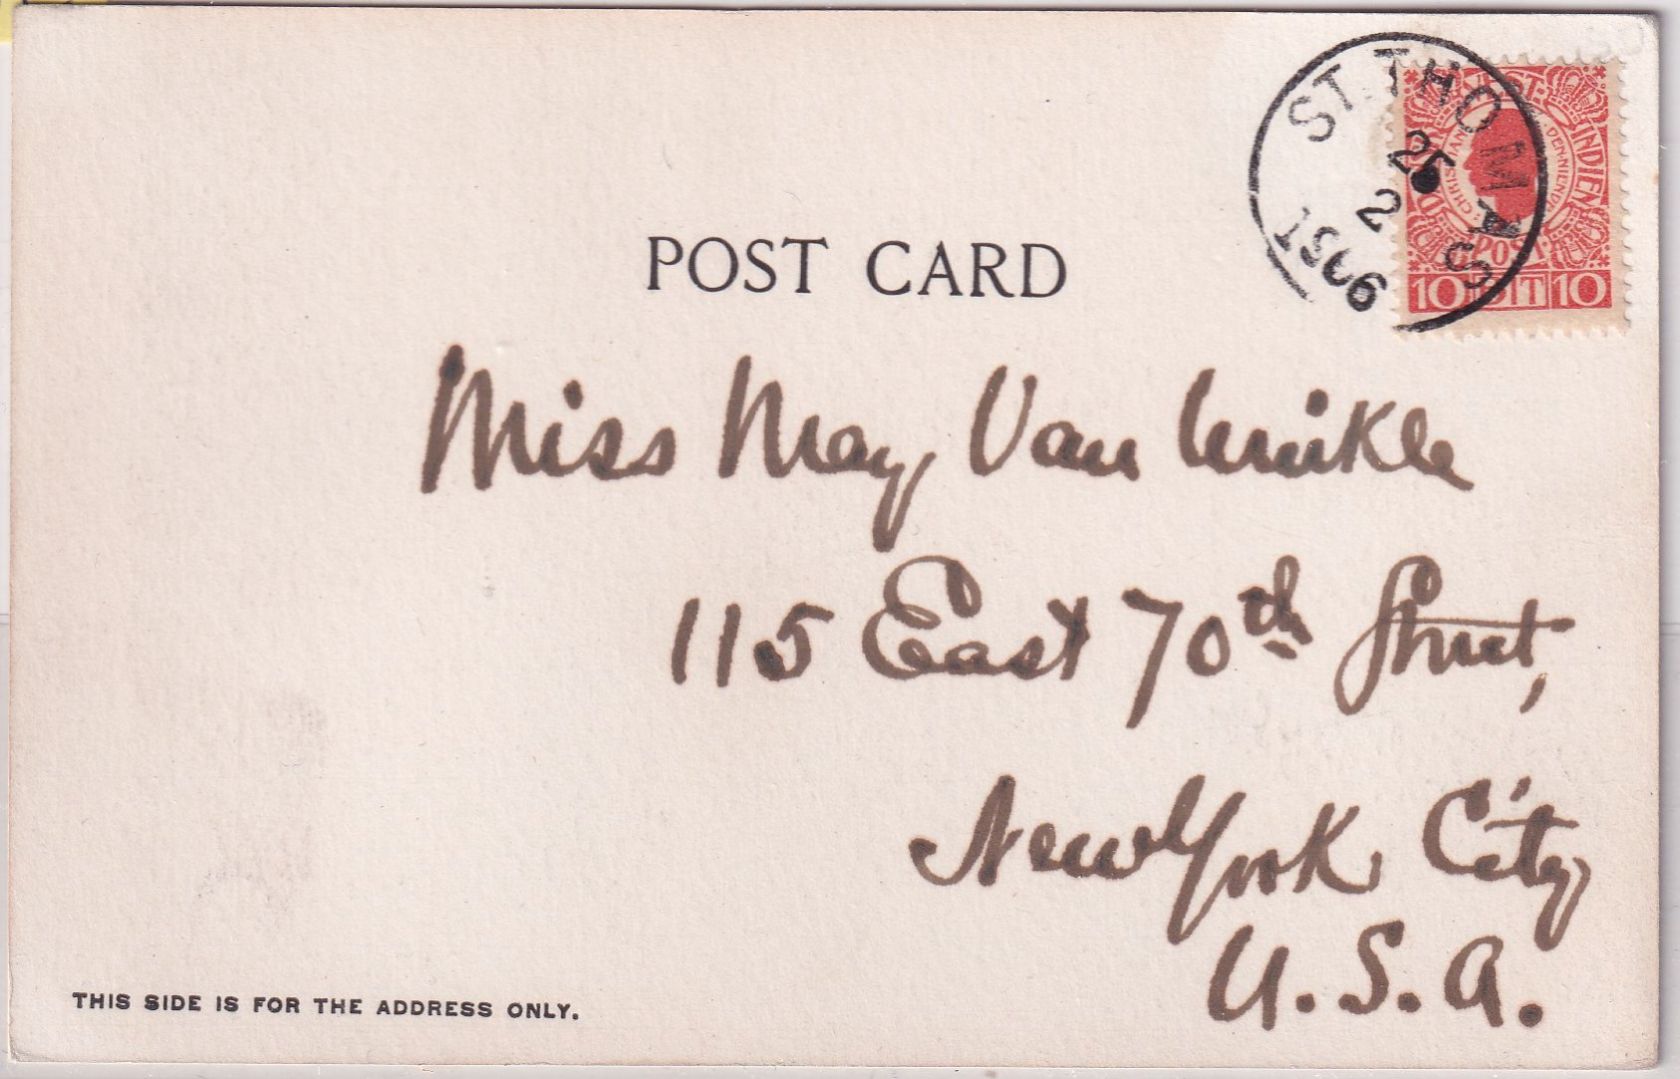 ST. THOMAS
25
2
1906
VESTINDIEN
CHRISTIAN DEN NIENDE
POST
10 BIT 10
POST CARD
Miss May Van Winkle
115 East 70th Street,
New York City
U.S.A.
THIS SIDE IS FOR THE ADDRESS ONLY.